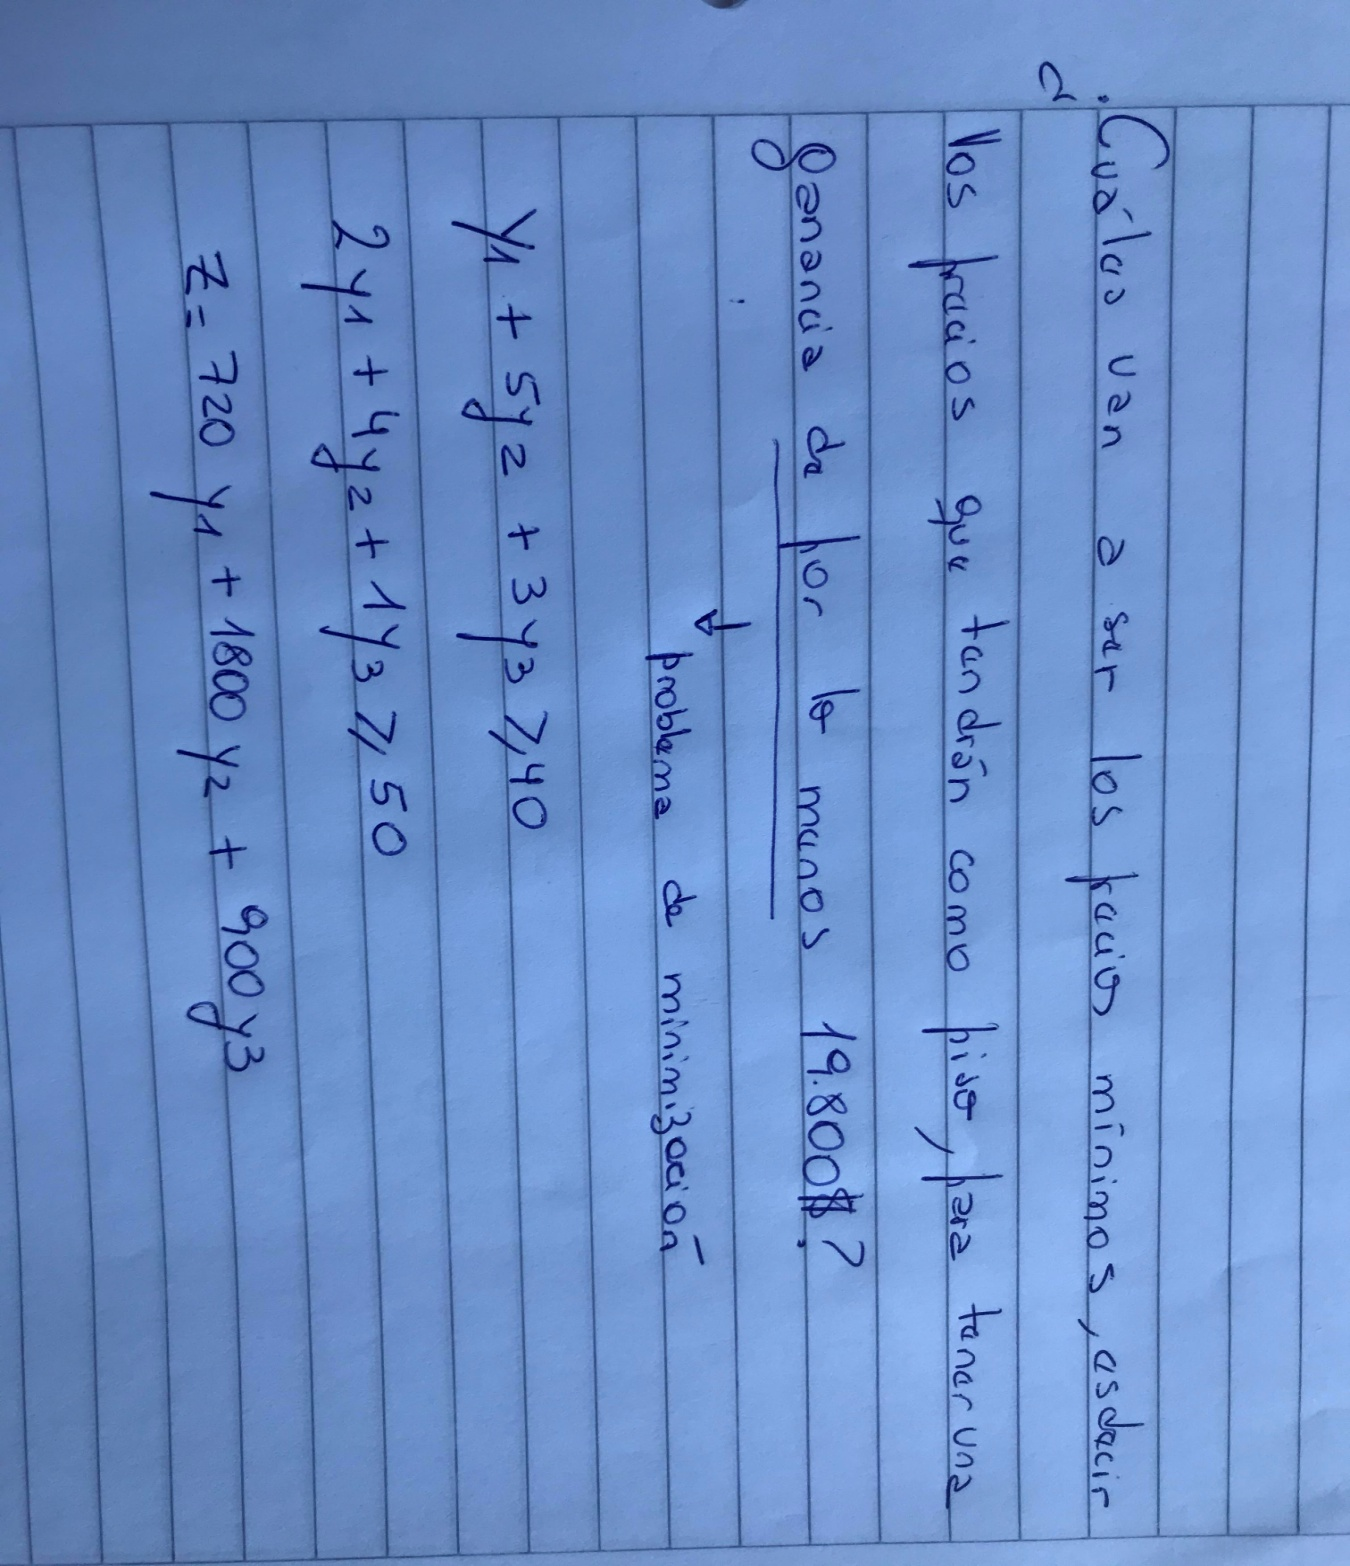 ¿Cuáles van a ser los precios mínimos, es decir
los precios que tendrán como piso, para tener una
ganancia de por lo menos 19.800$?
↓
problema de minimización
y1 + 5y2 + 3y3 ≥ 40
2y1 + 4y2 + 1y3 ≥ 50
z = 720 y1 + 1800 y2 + 900y3